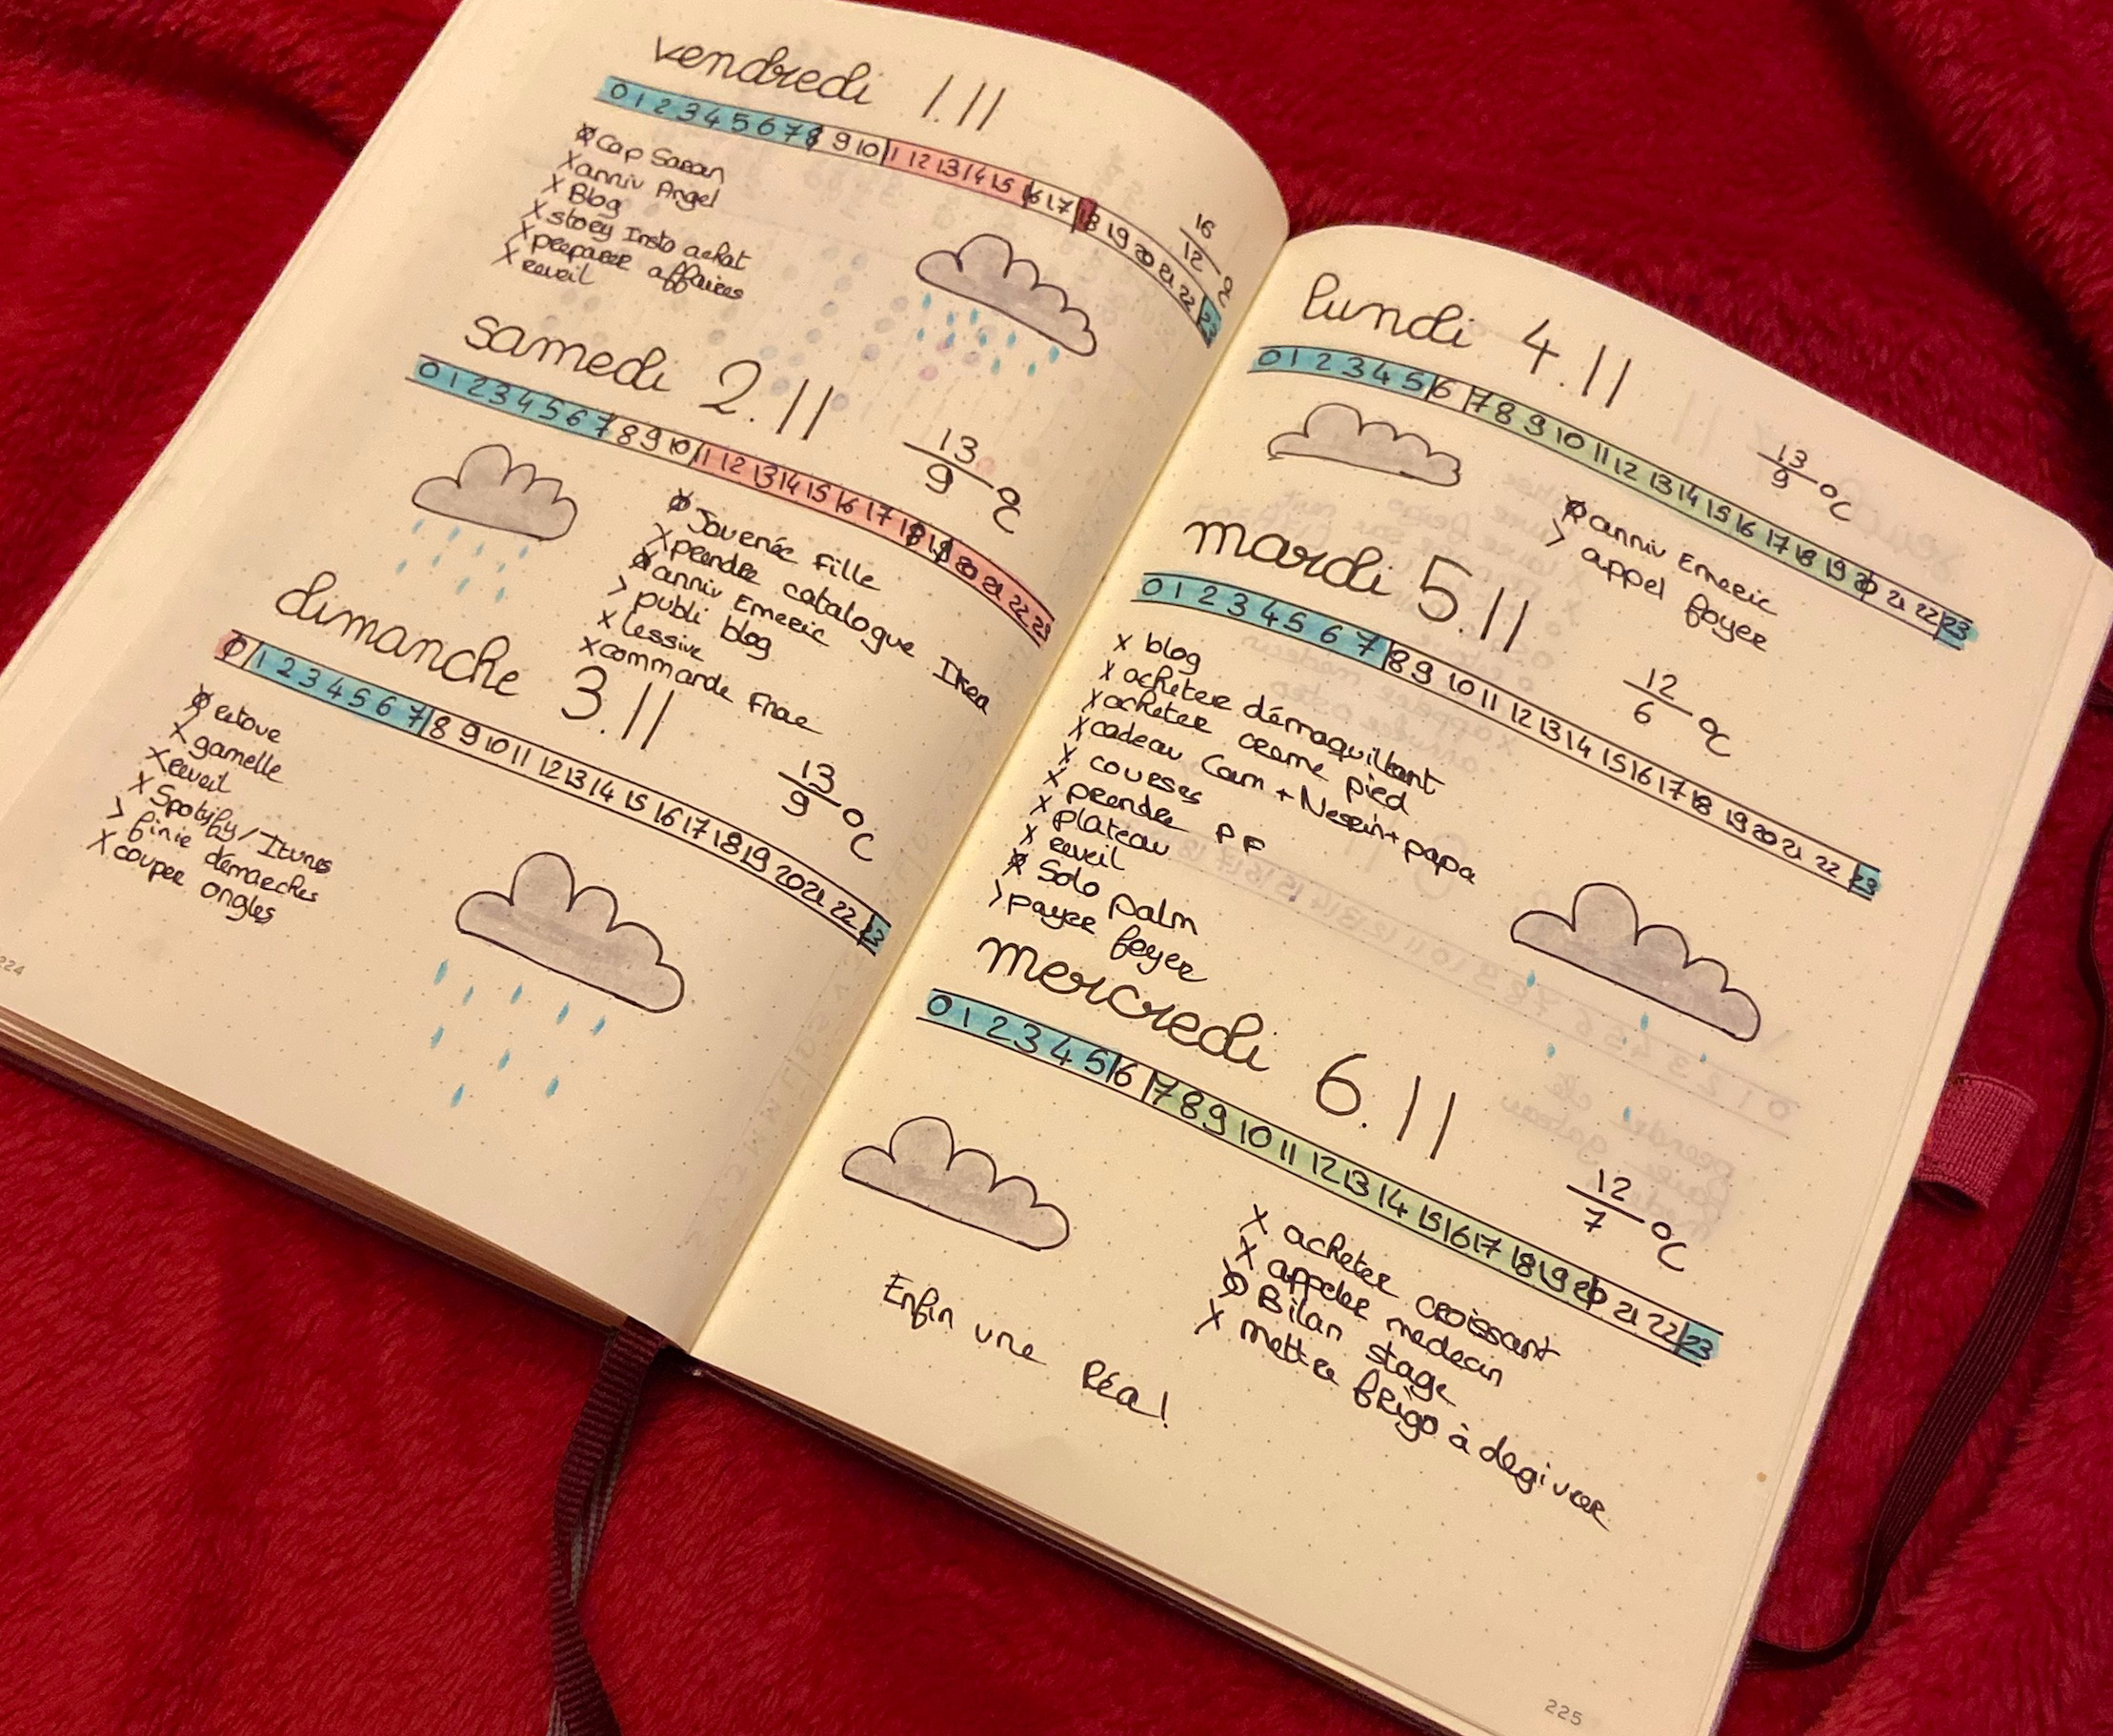 vendredi 1.11
0 1 2 3 4 5 6 7 8 9 10 11 12 13 14 15 16 17 18 19 20 21 22 23
16
12 °C
Cap Saran
x anniv Angel
x Blog
x story Insta achat
x preparer affaires
x reveil
samedi 2.11
0 1 2 3 4 5 6 7 8 9 10 11 12 13 14 15 16 17 18 19 20 21 22 23
13
9 °C
Journée fille
x prendre catalogue Ikea
anniv Emeric
> publi blog
x lessive
x commande Fnac
dimanche 3.11
0 1 2 3 4 5 6 7 8 9 10 11 12 13 14 15 16 17 18 19 20 21 22 23
13
9 °C
retour
x gamelle
x reveil
x Spotify/Itunes
> finir démarches
x couper ongles
224
lundi 4.11
0 1 2 3 4 5 6 7 8 9 10 11 12 13 14 15 16 17 18 19 20 21 22 23
13
9 °C
anniv Emeric
> appel foyer
mardi 5.11
0 1 2 3 4 5 6 7 8 9 10 11 12 13 14 15 16 17 18 19 20 21 22 23
12
6 °C
x blog
x acheter démaquillant
x acheter creme pied
x cadeau Cam + Nesrin + papa
x courses
x prendre PF
x plateau
x reveil
Solo palm
> payer foyer
mercredi 6.11
0 1 2 3 4 5 6 7 8 9 10 11 12 13 14 15 16 17 18 19 20 21 22 23
12
7 °C
x acheter croissant
x appeler medecin
Bilan stage
x mettre frigo à degivrer
Enfin une Réa!
225